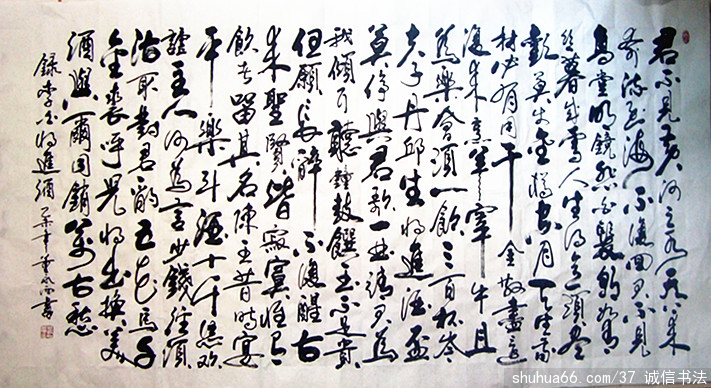 君不見黄河之水天上来
奔流到海不復回君不見
高堂明鏡悲白髮朝如青
丝暮成雪人生得意須尽
歡莫使金樽空对月天生我
材必有用千金散盡還
復来烹羊宰牛且
為樂會須一飲三百杯岑
夫子丹邱生将進酒盃
莫停與君歌一曲請君為
我傾耳聽鐘鼓饌玉不足貴
但願長醉不復醒古
来聖賢皆寂寞惟有
飲者留其名陳王昔時宴
平樂斗酒十千恣欢
謔主人何為言少錢径須
沽取對君酌五花馬千
金裘呼兒将出換美
酒與爾同銷萬古愁
録李白将進酒
shuhua66.com/37 诚信书法